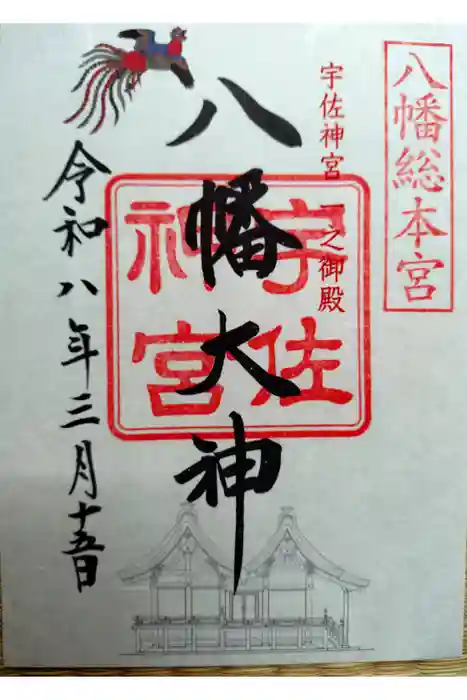 八幡総本宮
宇佐神宮 一之御殿
八幡大神
宇佐
神宮
令和八年三月十五日